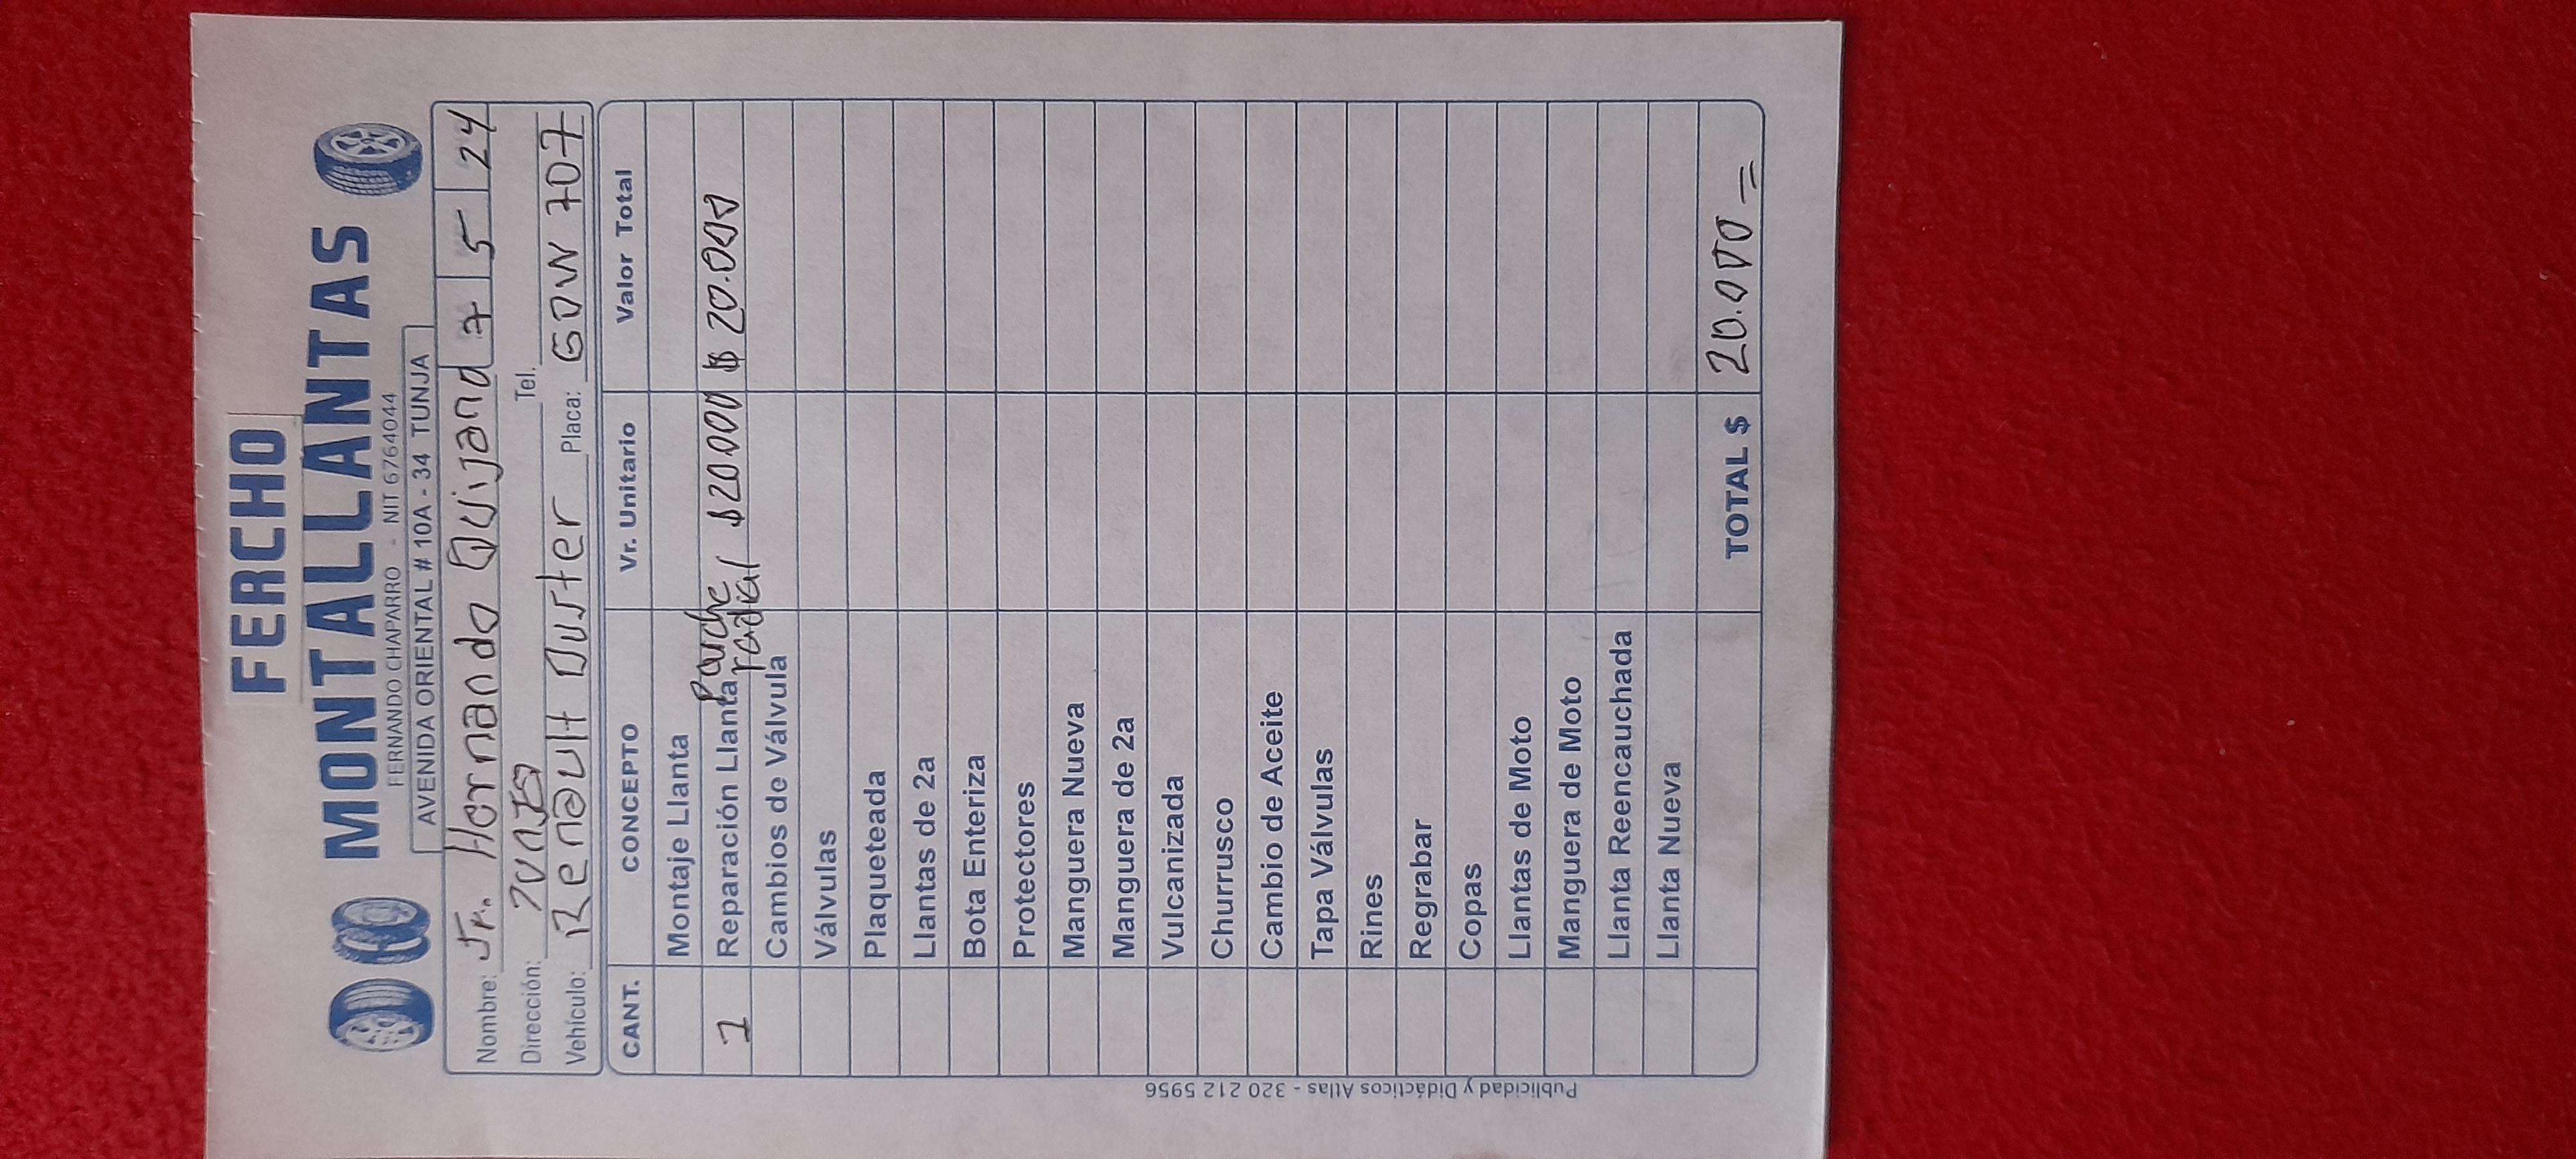 FERCHO
MONTALLANTAS
FERNANDO CHAPARRO - NIT 6764044
AVENIDA ORIENTAL # 10A - 34 TUNJA
Nombre: Sr. Hernando Quijano 7 5 24
Dirección: Tunja Tel.
Vehículo: Renault Duster Placa: GDW 707
CANT. CONCEPTO Vr. Unitario Valor Total
Montaje Llanta
1 Reparación Llanta Parche radial $20000 $ 20.000
Cambios de Válvula
Válvulas
Plaqueteada
Llantas de 2a
Bota Enteriza
Protectores
Manguera Nueva
Manguera de 2a
Vulcanizada
Churrusco
Cambio de Aceite
Tapa Válvulas
Rines
Regrabar
Copas
Llantas de Moto
Manguera de Moto
Llanta Reencauchada
Llanta Nueva
TOTAL $ 20.000=
Publicidad y Didácticos Atlas - 320 212 5956